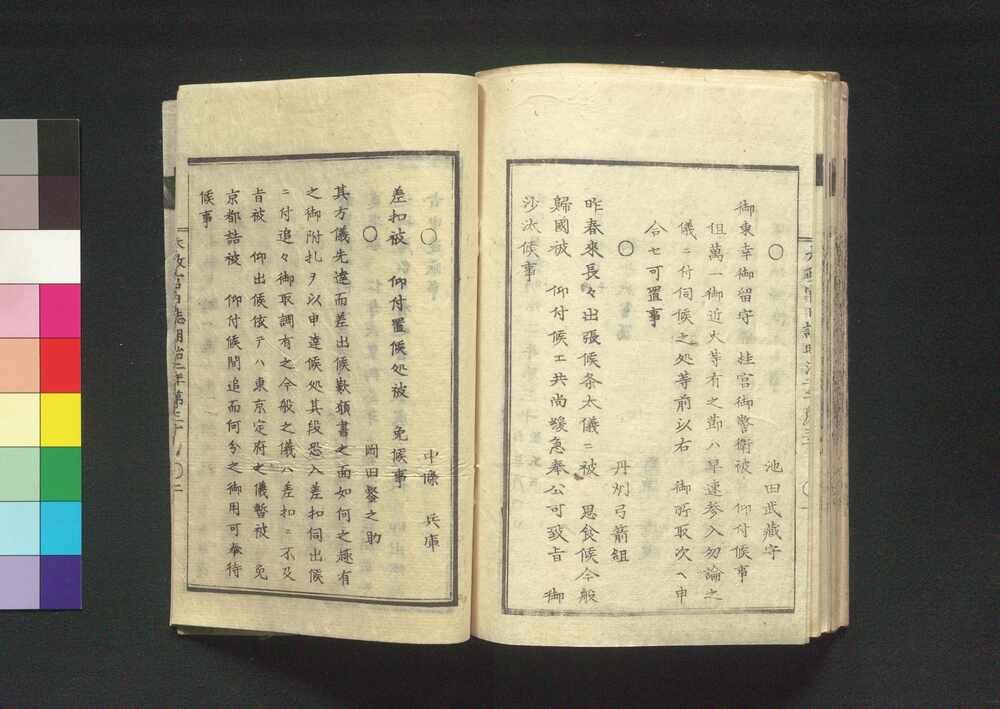 ○　　　　池田武藏守
御東幸御留守　桂宮御警衛被　仰付候事
但萬一御近火等有之節ハ早速参入勿論之
儀ニ付伺候之処等前以右　御所取次ヘ申
合セ可置事
○　　　　丹州弓箭組
昨春來長々出張候条太儀ニ被　思食候今般
歸國被　仰付候エ共尚緩急奉公可致旨　御
沙汰候事
○　　　　中條　兵庫
差扣被　仰付置候処被　免候事
○　　　　岡田聟之助
其方儀先達而差出候歎願書之面如何之趣有
之御附札ヲ以申達候処其段恐入差扣伺出候
ニ付追々御取調有之今般之儀ハ差扣ニ不及
旨被　仰出候依テハ東京定府之儀暫被　免
京都詰被　仰付候間追而何分之御用可奉待
候事
太政官日誌明治二年第三十　○二